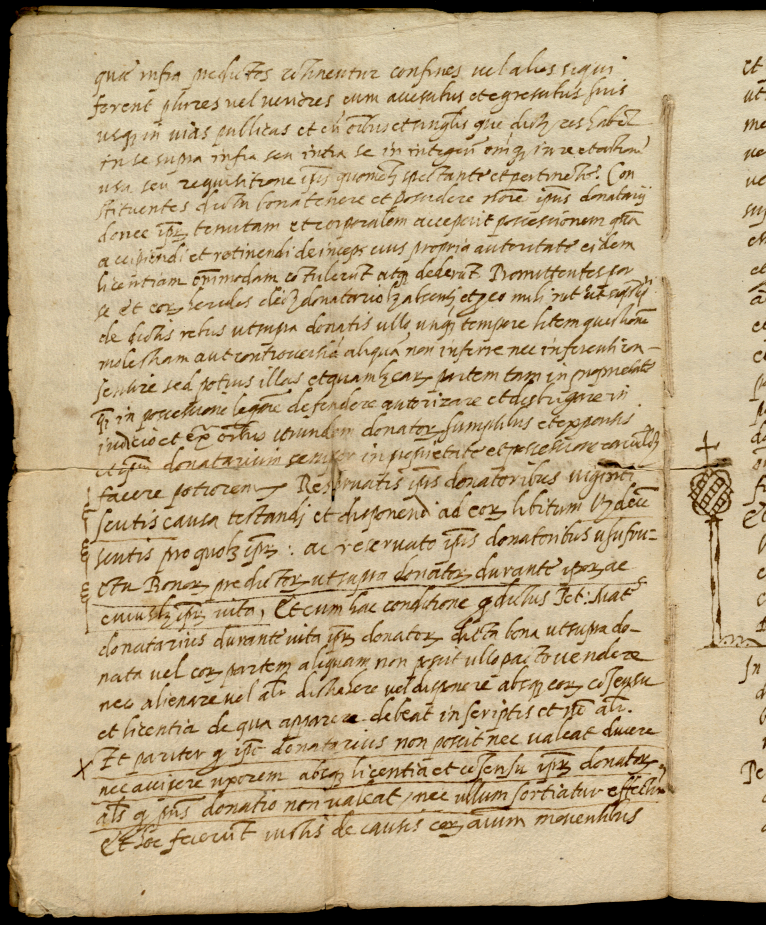 que infra predictos continentur confines vel alios si qui
forent plures vel veriores cum accessibus et egressibus suis
usq in vias publicas et cũ oĩbus et singlis que dicte res habet
in se supra infra seu intra se in integrũ omiq iure et actione
usa seu requisitione ipsis quomõlt spectante et pertinente. Con
stituentes dicta bona tenere et possidere noĩe ipsius donatarij
donec ipor tenutam et corporalem acceperit possessionem quã
accipiendi et retinendi deinceps eius propria autoritate eidem
licentiam omnimodam cõtulerũt atq dederũt Promittentes per
se et eor heredes dicto donatario licet absenti et
de dictis rebus ut supra donatis ullo unq tempore litem questione
molestiam aut controversiã aliquã non inferre nec inferenti con-
sentire sed potius illas et quamlt ear partem tam in proprietate
q in possessione legitime defendere autorizare et disbrigare in
iudicio et ex oĩbus ipsorum donator sumptibus et expensis
et ipsum donatarium semper in proprietate et possessione
facere potiorem. Reservatis ipsis donatoribus viginti
scutis causa testandi et disponendi ad eor libitum vz decẽ
scutis pro quolt ipor: ac reservato ipsis donatoribus usufru-
ctu Bonor predictor ut supra donator durante ipor ac
cuiuslt ipor vita, Et cum hac conditione q dictus Pet: Mat
donatarius durante vita ipor donator dicta bona ut supra do-
nata vel eor partem aliquam non possit ullo pacto vendere
nec alienare vel alr distrahere vel disponere absq eor cõsensu
et licentia de qua apparere debeat in scriptis et nõ alr.
X Et pariter q ipse donatarius non possit nec valeat ducere
nec accipere uxorem absq licentia et cõsensu ipor donator
als q pñs donatio non valeat, nec ullum sortiatur effectũ
Et hoc fecerũt iustis de causis eor aĩum moventibus